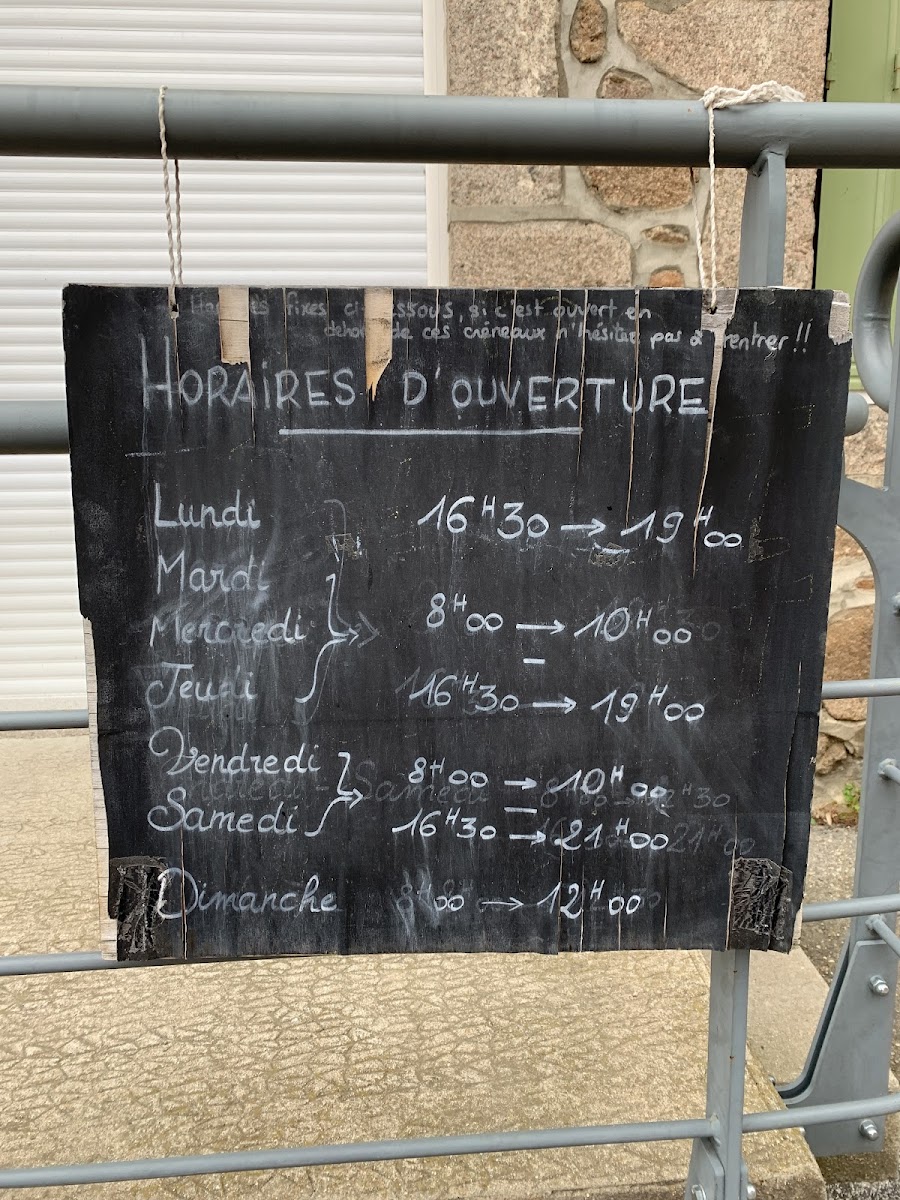 Horaires fixes ci-dessous, si c'est ouvert en
dehors de ces créneaux n'hésitez pas à rentrer !!
HORAIRES D'OUVERTURE
Lundi 16H30 → 19H00
Mardi
Mercredi 8H00 → 10H00
Jeudi 16H30 → 19H00
Vendredi 8H00 → 10H00
Samedi 16H30 → 21H00
Dimanche 8H00 → 12H00